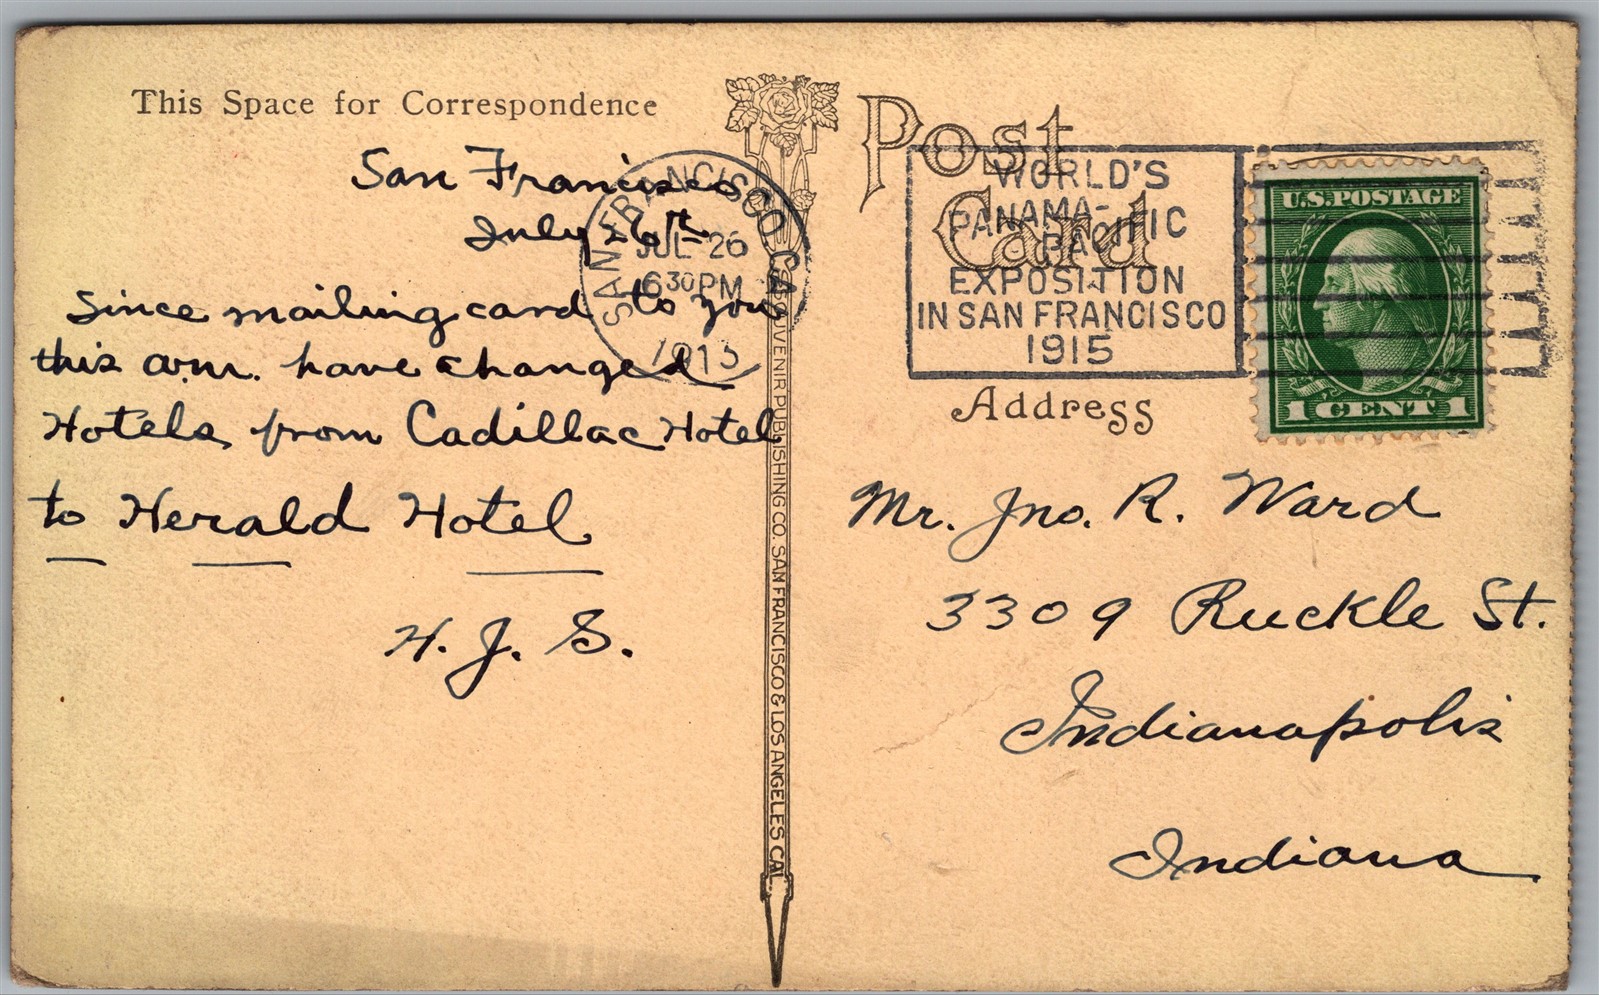 This Space for Correspondence
San Francisco
July 26th
Since mailing card to you
this a.m. have changed
Hotels from Cadillac Hotel
to Herald Hotel
H. J. S.
SAN FRANCISCO, CAL.
JUL 26
630 PM
1915
SOUVENIR PUBLISHING CO. SAN FRANCISCO & LOS ANGELES CAL.
Post
Card
WORLD'S
PANAMA-
PACIFIC
EXPOSITION
IN SAN FRANCISCO
1915
U.S. POSTAGE
1 CENT 1
Address
Mr. Jno. R. Ward
3309 Ruckle St.
Indianapolis
Indiana